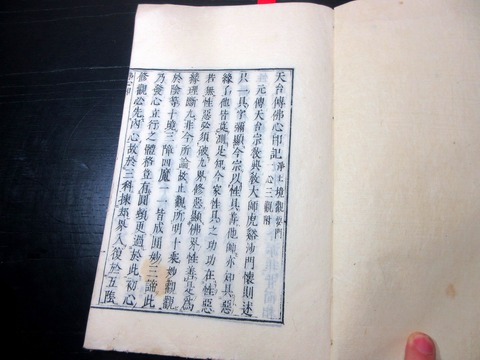 天台傳佛心印記 淨土境觀要門
一心三觀附
元傳天台宗教興教大師虎谿沙門懷則述
只一具字彌顯今宗以性具善他師亦知具惡
緣了他皆莫測是知今家性具之功功在性惡
若無性惡必須破九界修惡顯佛界性善是為
緣理斷九非今所論故止觀所明十乘妙觀觀
於陰等十境三障四魔一一皆成圓妙三諦此
乃發心立行之體格豈有圓頓更過於此初心
修觀必先內心故於三科揀界入復於五陰